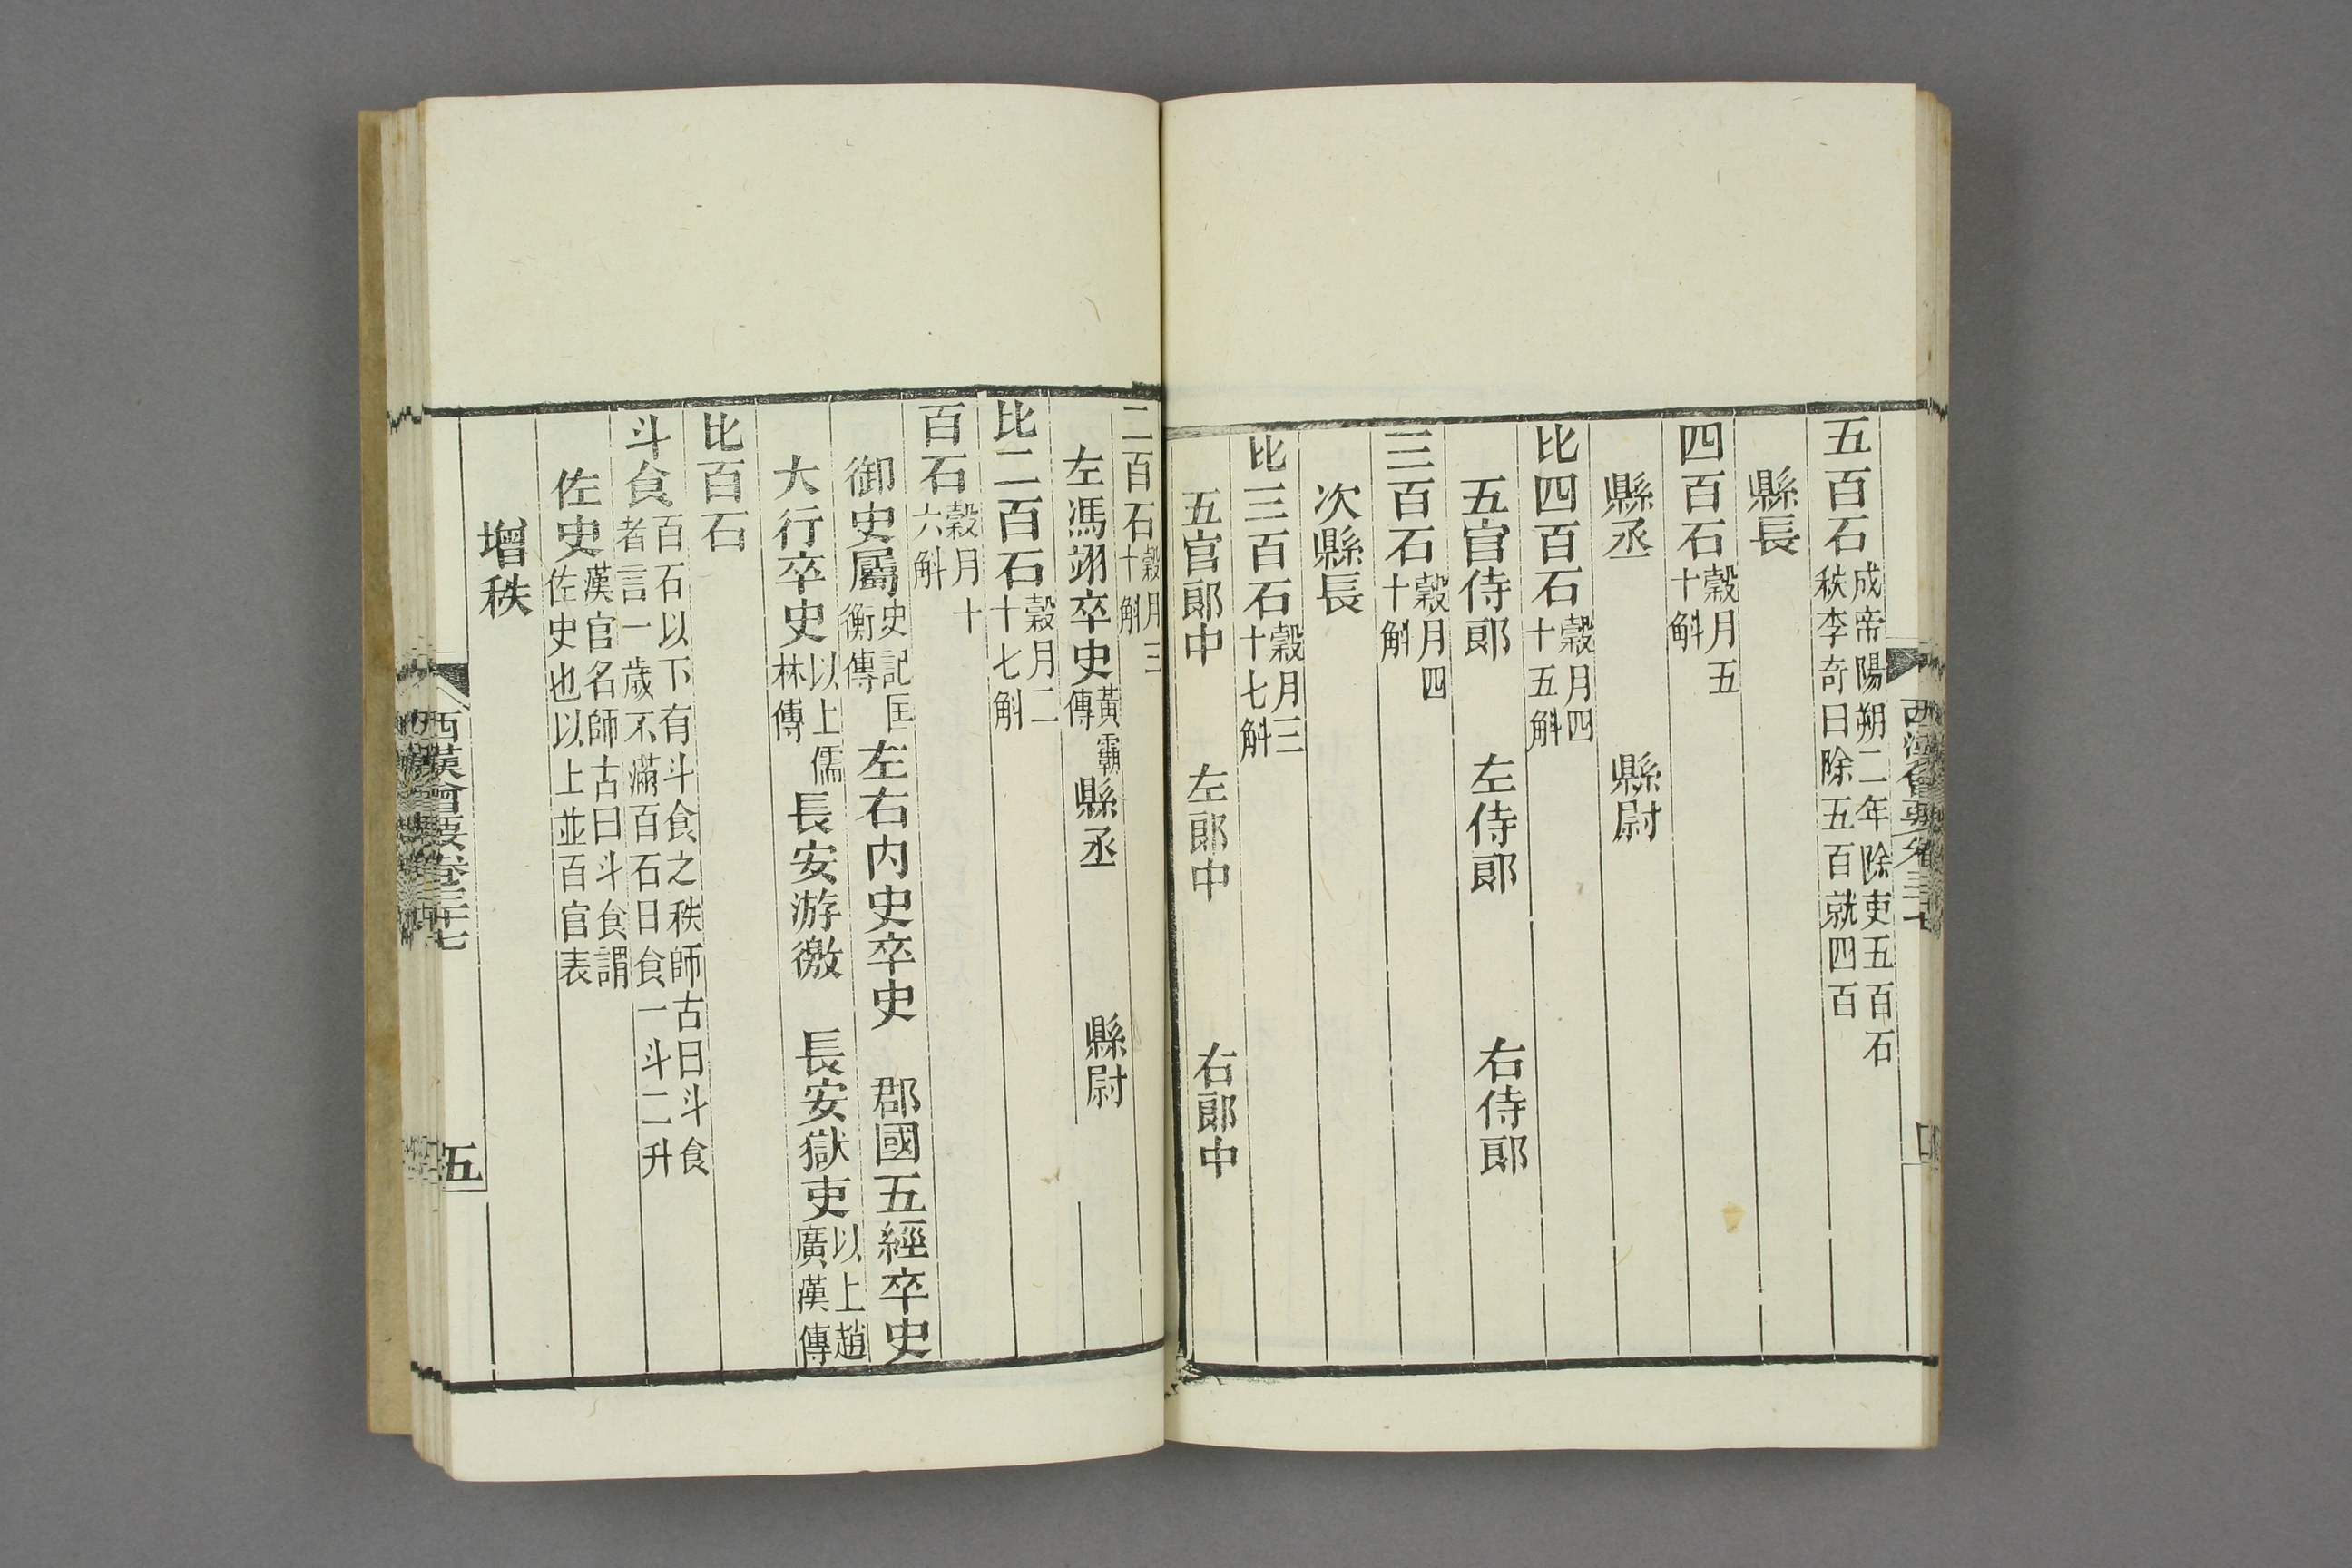 五百石成帝陽朔二年除吏五百石秩李奇曰除五百就四百
縣長
四百石穀月五十斛
縣丞 縣尉
比四百石穀月四十五斛
五官侍郎 左侍郎 右侍郎
三百石穀月四十斛
次縣長
比三百石穀月三十七斛
五官郎中 左郎中 右郎中
二百石穀月三十斛
左馮翊卒史黃霸傳 縣丞 縣尉
比二百石穀月二十七斛
百石穀月十六斛
御史屬史記匡衡傳 左右內史卒史 郡國五經卒史
大行卒史以上儒林傳 長安游徼 長安獄吏以上趙廣漢傳
比百石
斗食百石以下有斗食之秩師古曰斗食者言一歲不滿百石日食一斗二升
佐史漢官名師古曰斗食謂佐史也以上並百官表
增秩
西漢會要卷三十七
五